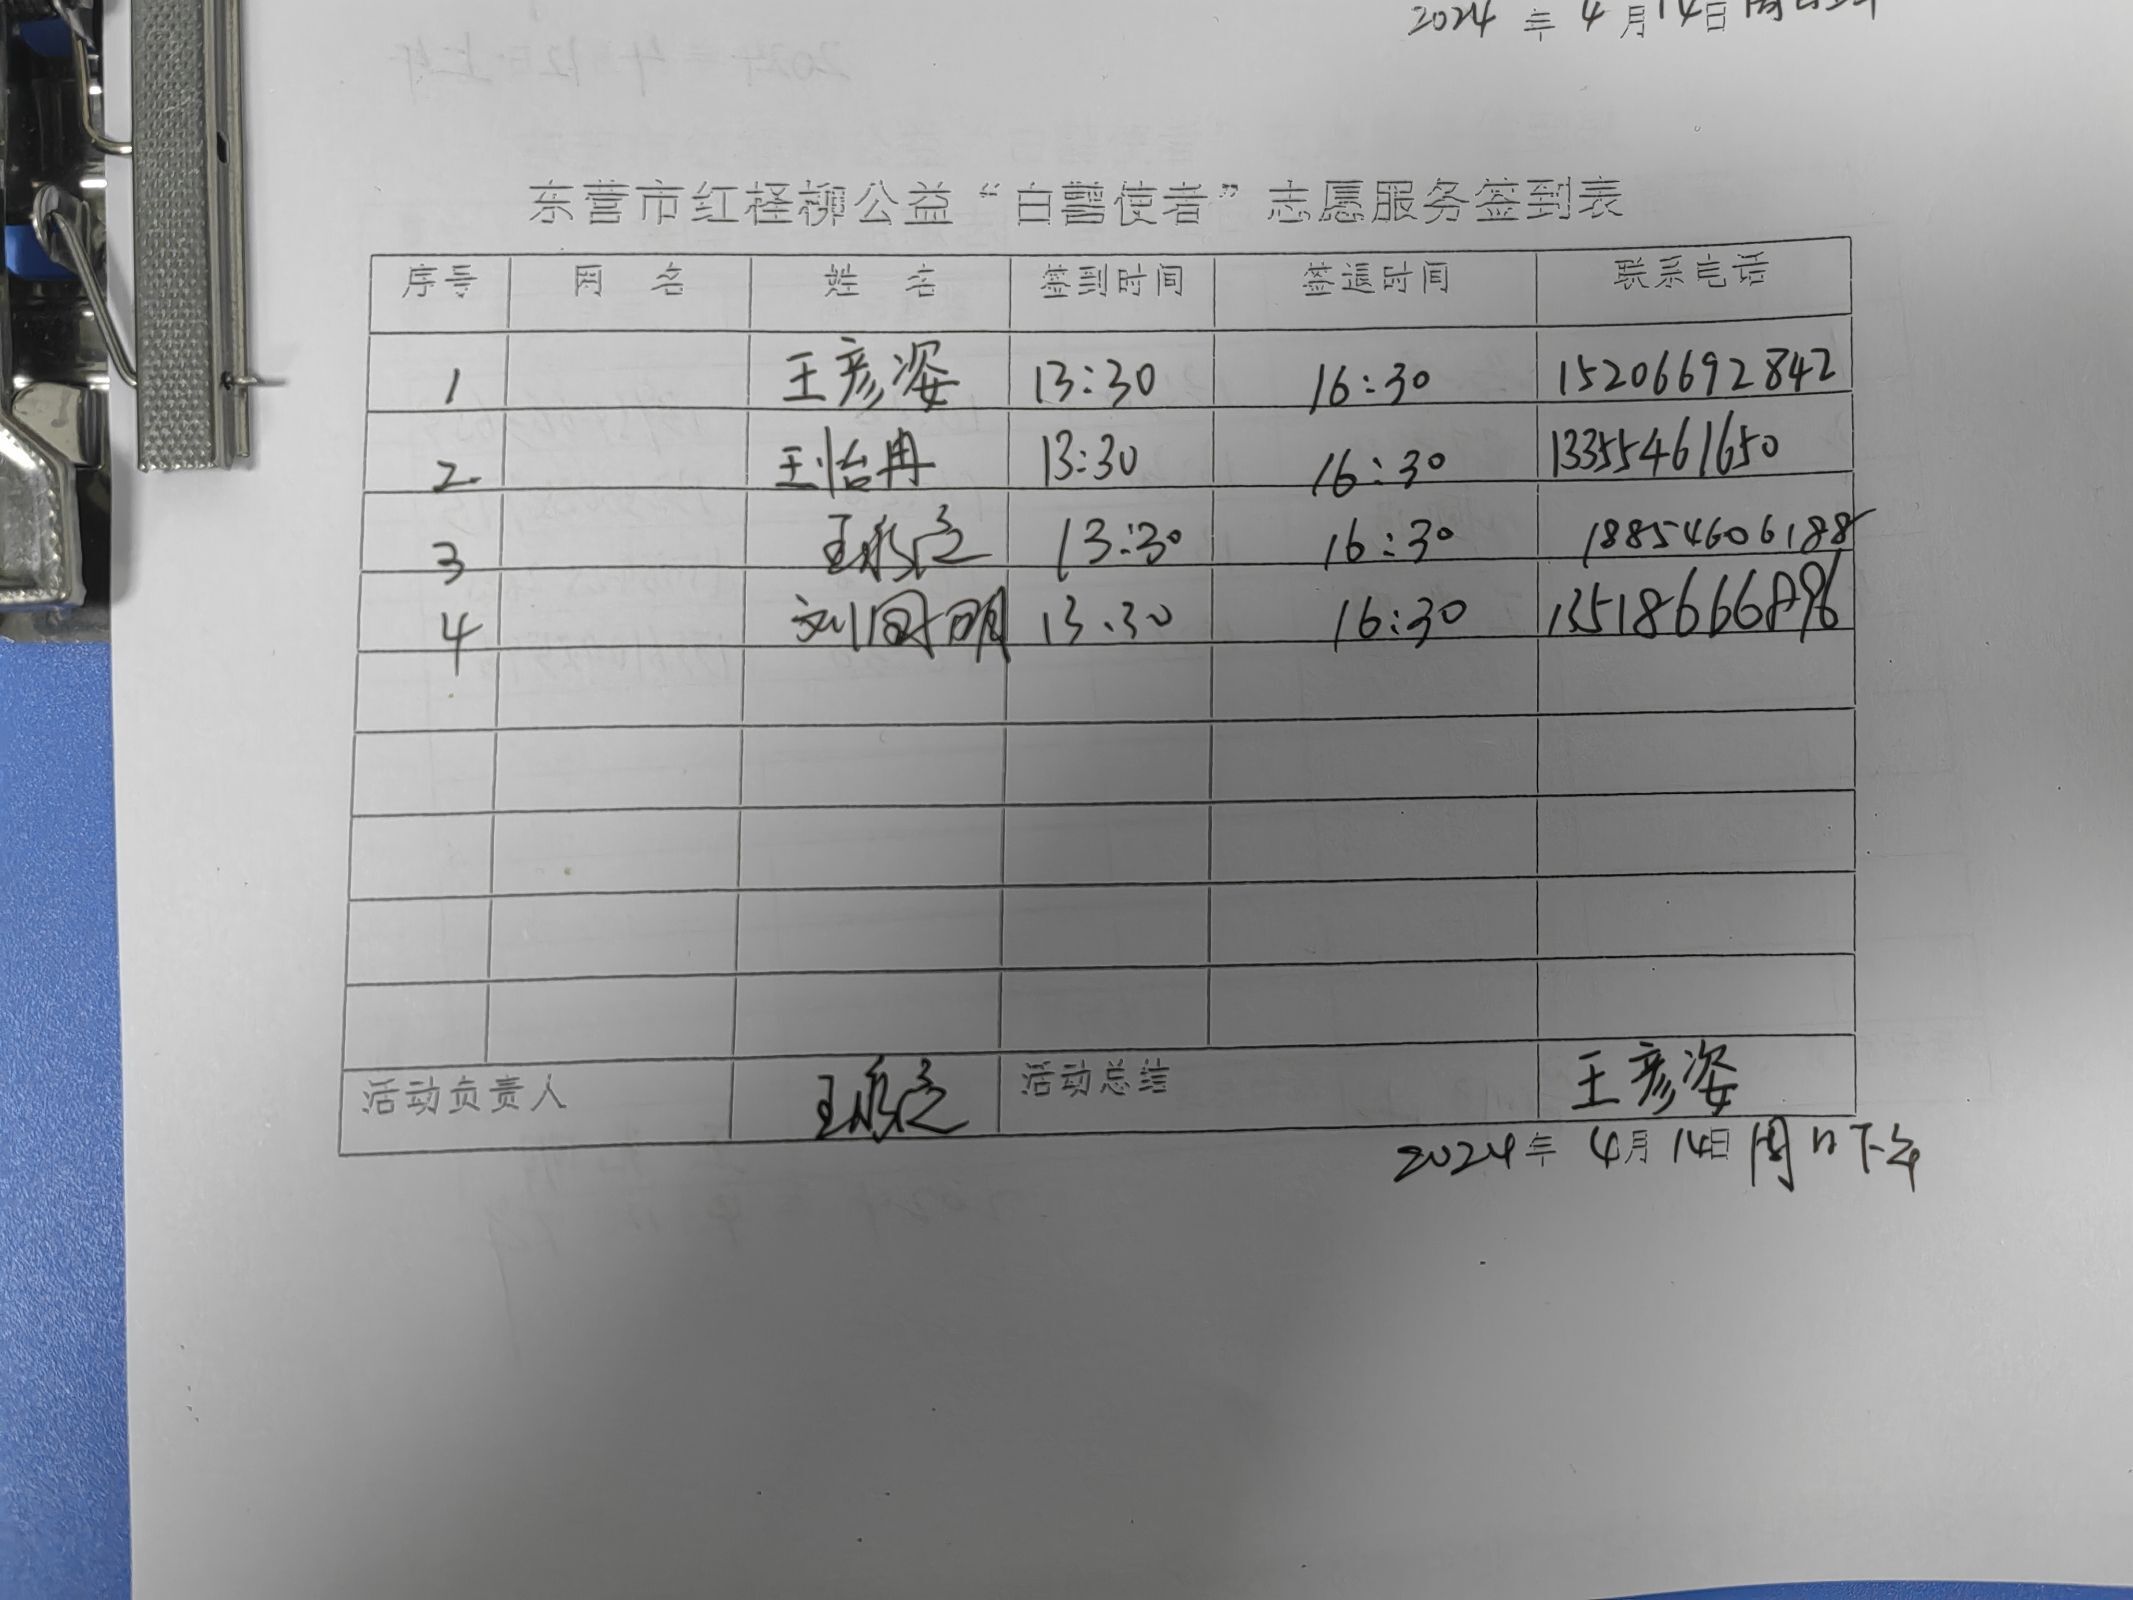 2024年4月14日周日上午
东营市红柽柳公益“白鹭使者”志愿服务签到表
序号 网 名 姓 名 签到时间 签退时间 联系电话
1 王彦姿 13:30 16:30 15206692842
2 王怡冉 13:30 16:30 13355461650
3 13:30 16:30 18854606188
4 刘国明 13.30 16:30 13518666896
活动负责人 活动总结 王彦姿
2024年4月14日周日下午